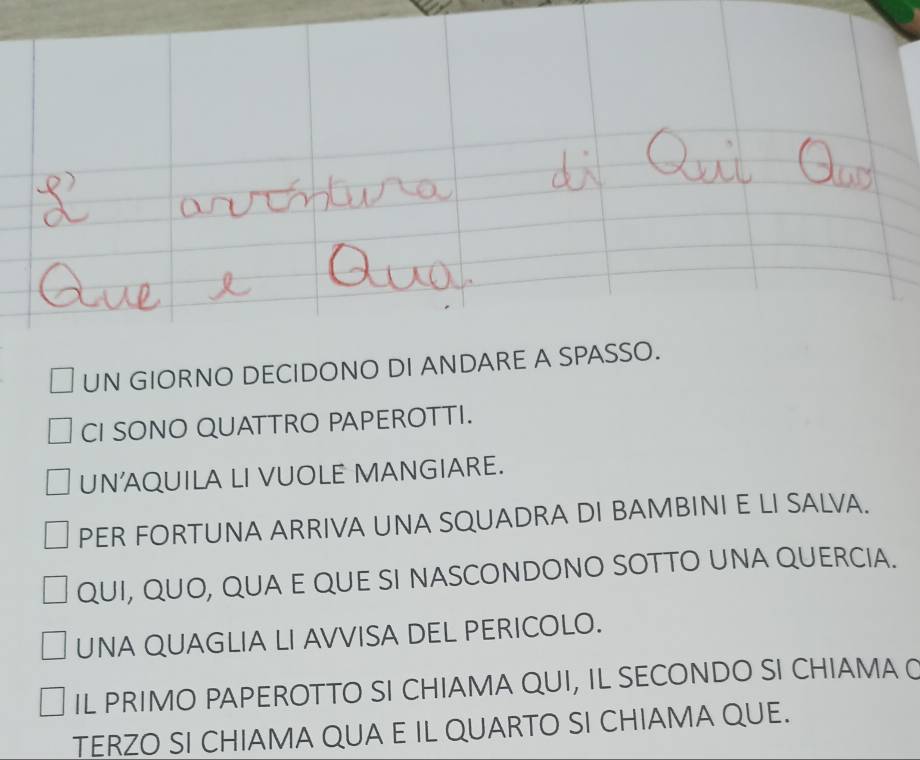 L' avventura di Qui Quo
Que e Qua.
UN GIORNO DECIDONO DI ANDARE A SPASSO.
CI SONO QUATTRO PAPEROTTI.
UN'AQUILA LI VUOLE MANGIARE.
PER FORTUNA ARRIVA UNA SQUADRA DI BAMBINI E LI SALVA.
QUI, QUO, QUA E QUE SI NASCONDONO SOTTO UNA QUERCIA.
UNA QUAGLIA LI AVVISA DEL PERICOLO.
IL PRIMO PAPEROTTO SI CHIAMA QUI, IL SECONDO SI CHIAMA
TERZO SI CHIAMA QUA E IL QUARTO SI CHIAMA QUE.